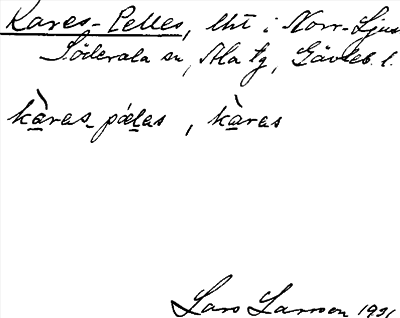 Kares-Pelles, lht i Norr-Ljus
Söderala sn, Ala tg, Gävleb. l.
kàres-pǽles, kàres
Lars Larsson 1921